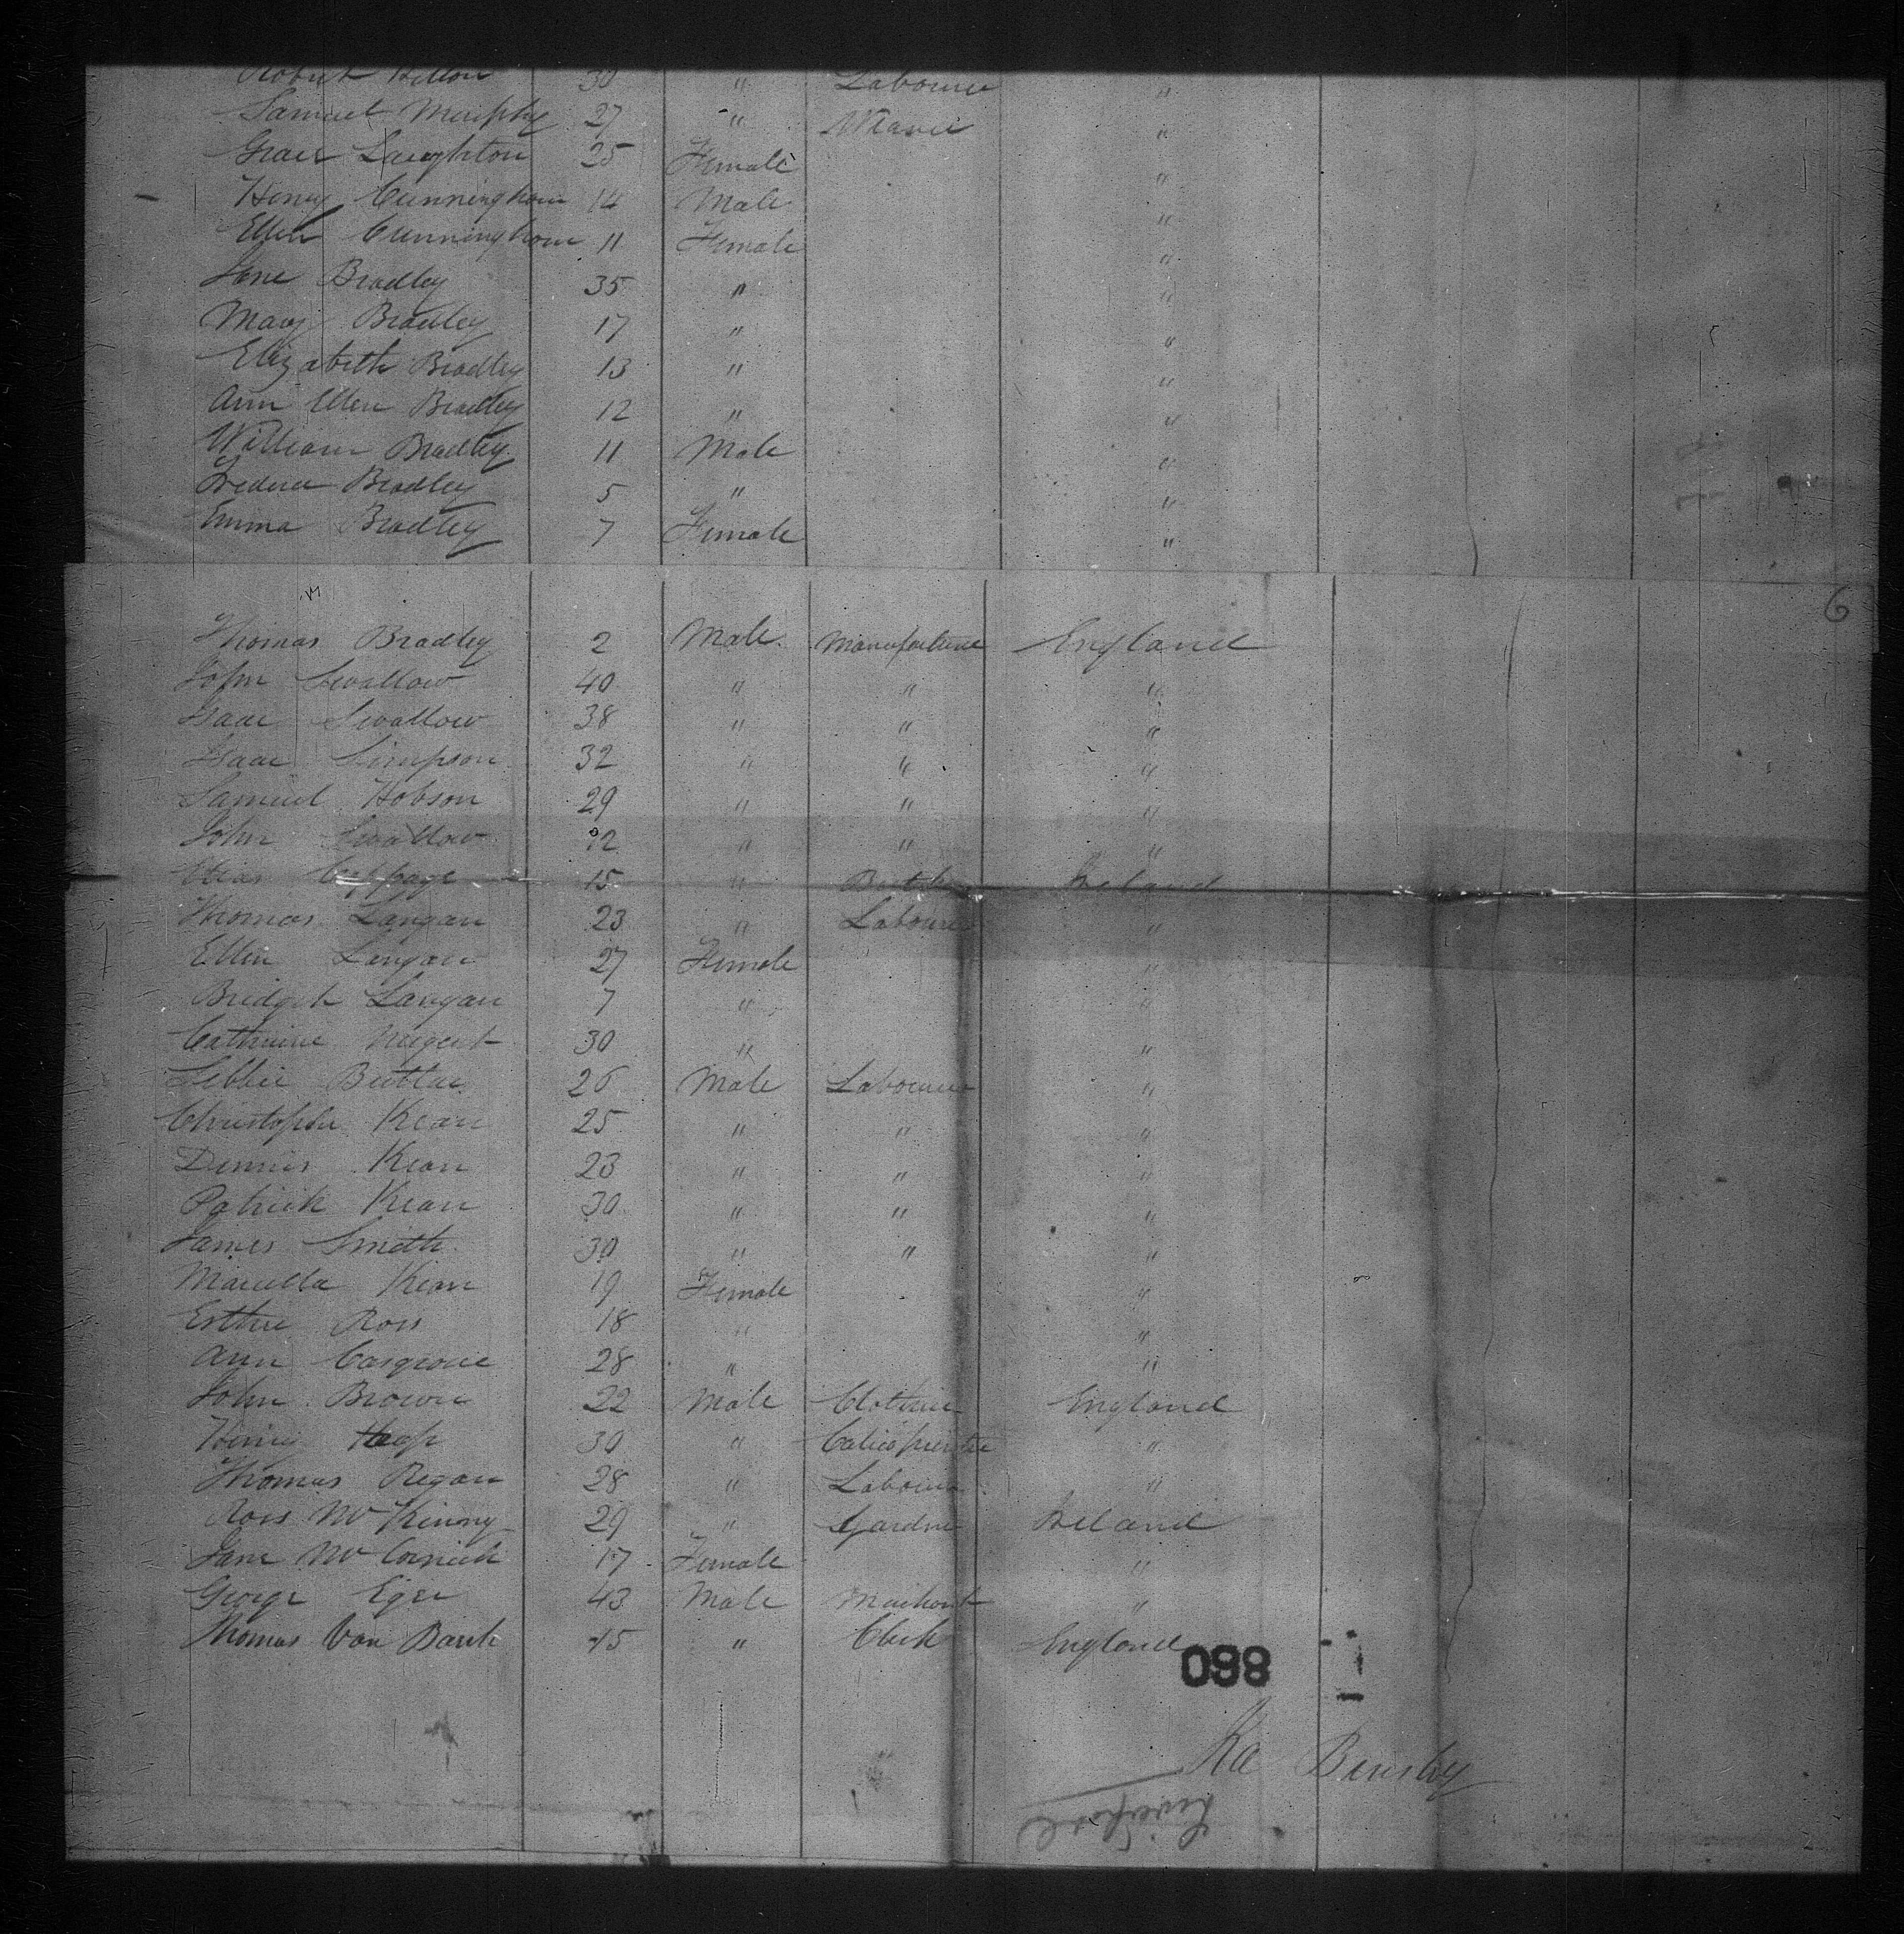 Robert Dillon 30 " Labourer "
Samuel Murphy 27 " Weaver "
Grace Laughton 25 Female "
Henry Cunningham 14 Male "
Ellen Cunningham 11 Female "
Jane Bradley 35 " "
Mary Bradley 17 " "
Elizabeth Bradley 13 " "
Ann Ellen Bradley 12 " "
William Bradley 11 Male "
Frederick Bradley 5 " "
Emma Bradley 7 Female "
6
Thomas Bradley 2 Male Manufacturer England
John Swallow 40 " " "
Isaac Swallow 38 " " "
Isaac Simpson 32 " " "
Samuel Hobson 29 " " "
John Swallow 12 " " "
Cuppage 15 " Ireland
Thomas Langan 23 " Labourer "
Ellen Langan 27 Female "
Bridget Langan 7 " "
Catherine Nugent 30 " "
Butler 26 Male Labourer "
Christopher Kean 25 " " "
Dennis Kean 23 " " "
Patrick Kean 30 " " "
James Smith 30 " " "
Marcella Kean 19 Female "
Esther Ross 18 " "
Ann Cosgrove 28 " "
John Brown 22 Male Clothier England
Henry 30 " Calico printer "
Thomas Regan 28 " Labourer "
Ross McKinny 29 " Gardner Ireland
Jane McCormick 17 Female "
George Eger 43 Male Merchant "
Thomas Van 15 " Clerk England
098
Liverpool